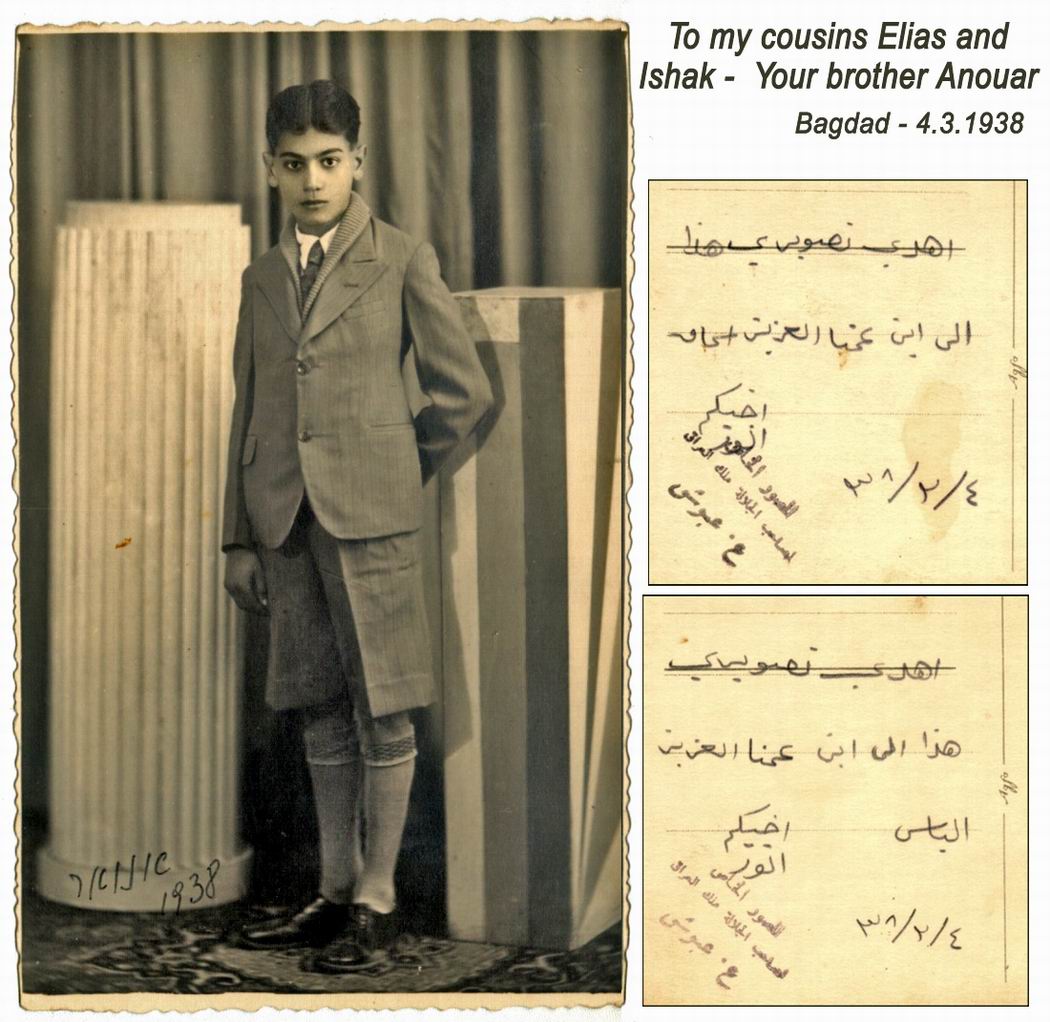 To my cousins Elias and
Ishak - Your brother Anouar
Bagdad - 4.3.1938
אנואר
1938
اهدي تصويري هذا
الى ابن عمنا العزيز اسحاق
اخيكم
انور
٣٨/٣/٤
المصور الخاص
لصاحب الجلالة ملك العراق
اهدي تصويري
هذا الى ابن عمنا العزيز
الياس
اخيكم
انور
٣٨/٣/٤
المصور الخاص
لصاحب الجلالة ملك العراق